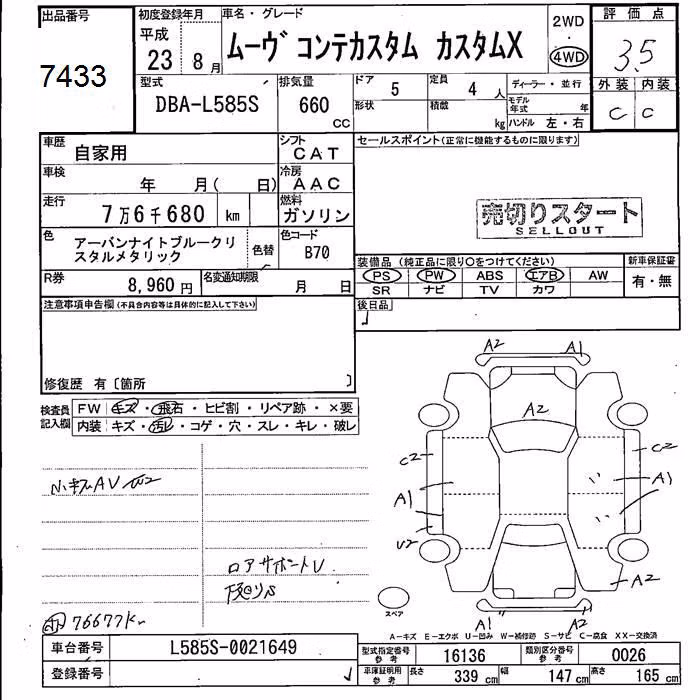 出品番号
7433
初度登録年月
平成
23 8月
車名・グレード
ムーヴ コンテカスタム カスタムX
2WD
4WD
評価点
3.5
外装 内装
C C
型式
DBA-L585S
排気量
660
CC
ドア
5
形状
定員
4 人
積載
kg
ディーラー・並行
モデル年式 年
ハンドル 左・右
車歴
自家用
シフト
CAT
車検
年 月( 日)
冷房
AAC
走行
7万6千680 km
燃料
ガソリン
色
アーバンナイトブルークリ
スタルメタリック
色替
色コード
B70
R券
8,960円
名変通知期限
月 日
セールスポイント(正常に機能するものに限ります)
売切りスタート
SELLOUT
装備品 (純正品に限り○をつけてください)
PS PW ABS エアB AW
SR ナビ TV カワ
新車保証書
有・無
注意事項申告欄(不具合内容等は具体的に記入して下さい)
後日品
修復歴 有〔箇所 〕
検査員
記入欄
FW キズ・飛石・ヒビ割・リペア跡・×要
内装 キズ・汚レ・コゲ・穴・スレ・キレ・破レ
小キズAV W2
ロアサポートU
下廻りS
76677K
A2 A1
A2
C2 C2
A1 A1
U2
A2
A1 A2
スペア
A-キズ E-エクボ U-凹み W-補修跡 S-サビ C-腐食 XX-交換済
車台番号
L585S-0021649
登録番号
型式指定番号
参考
16136
類別区分番号
参考
0026
車庫証明用
参考
長さ 339 cm 幅 147 cm 高さ 165 cm